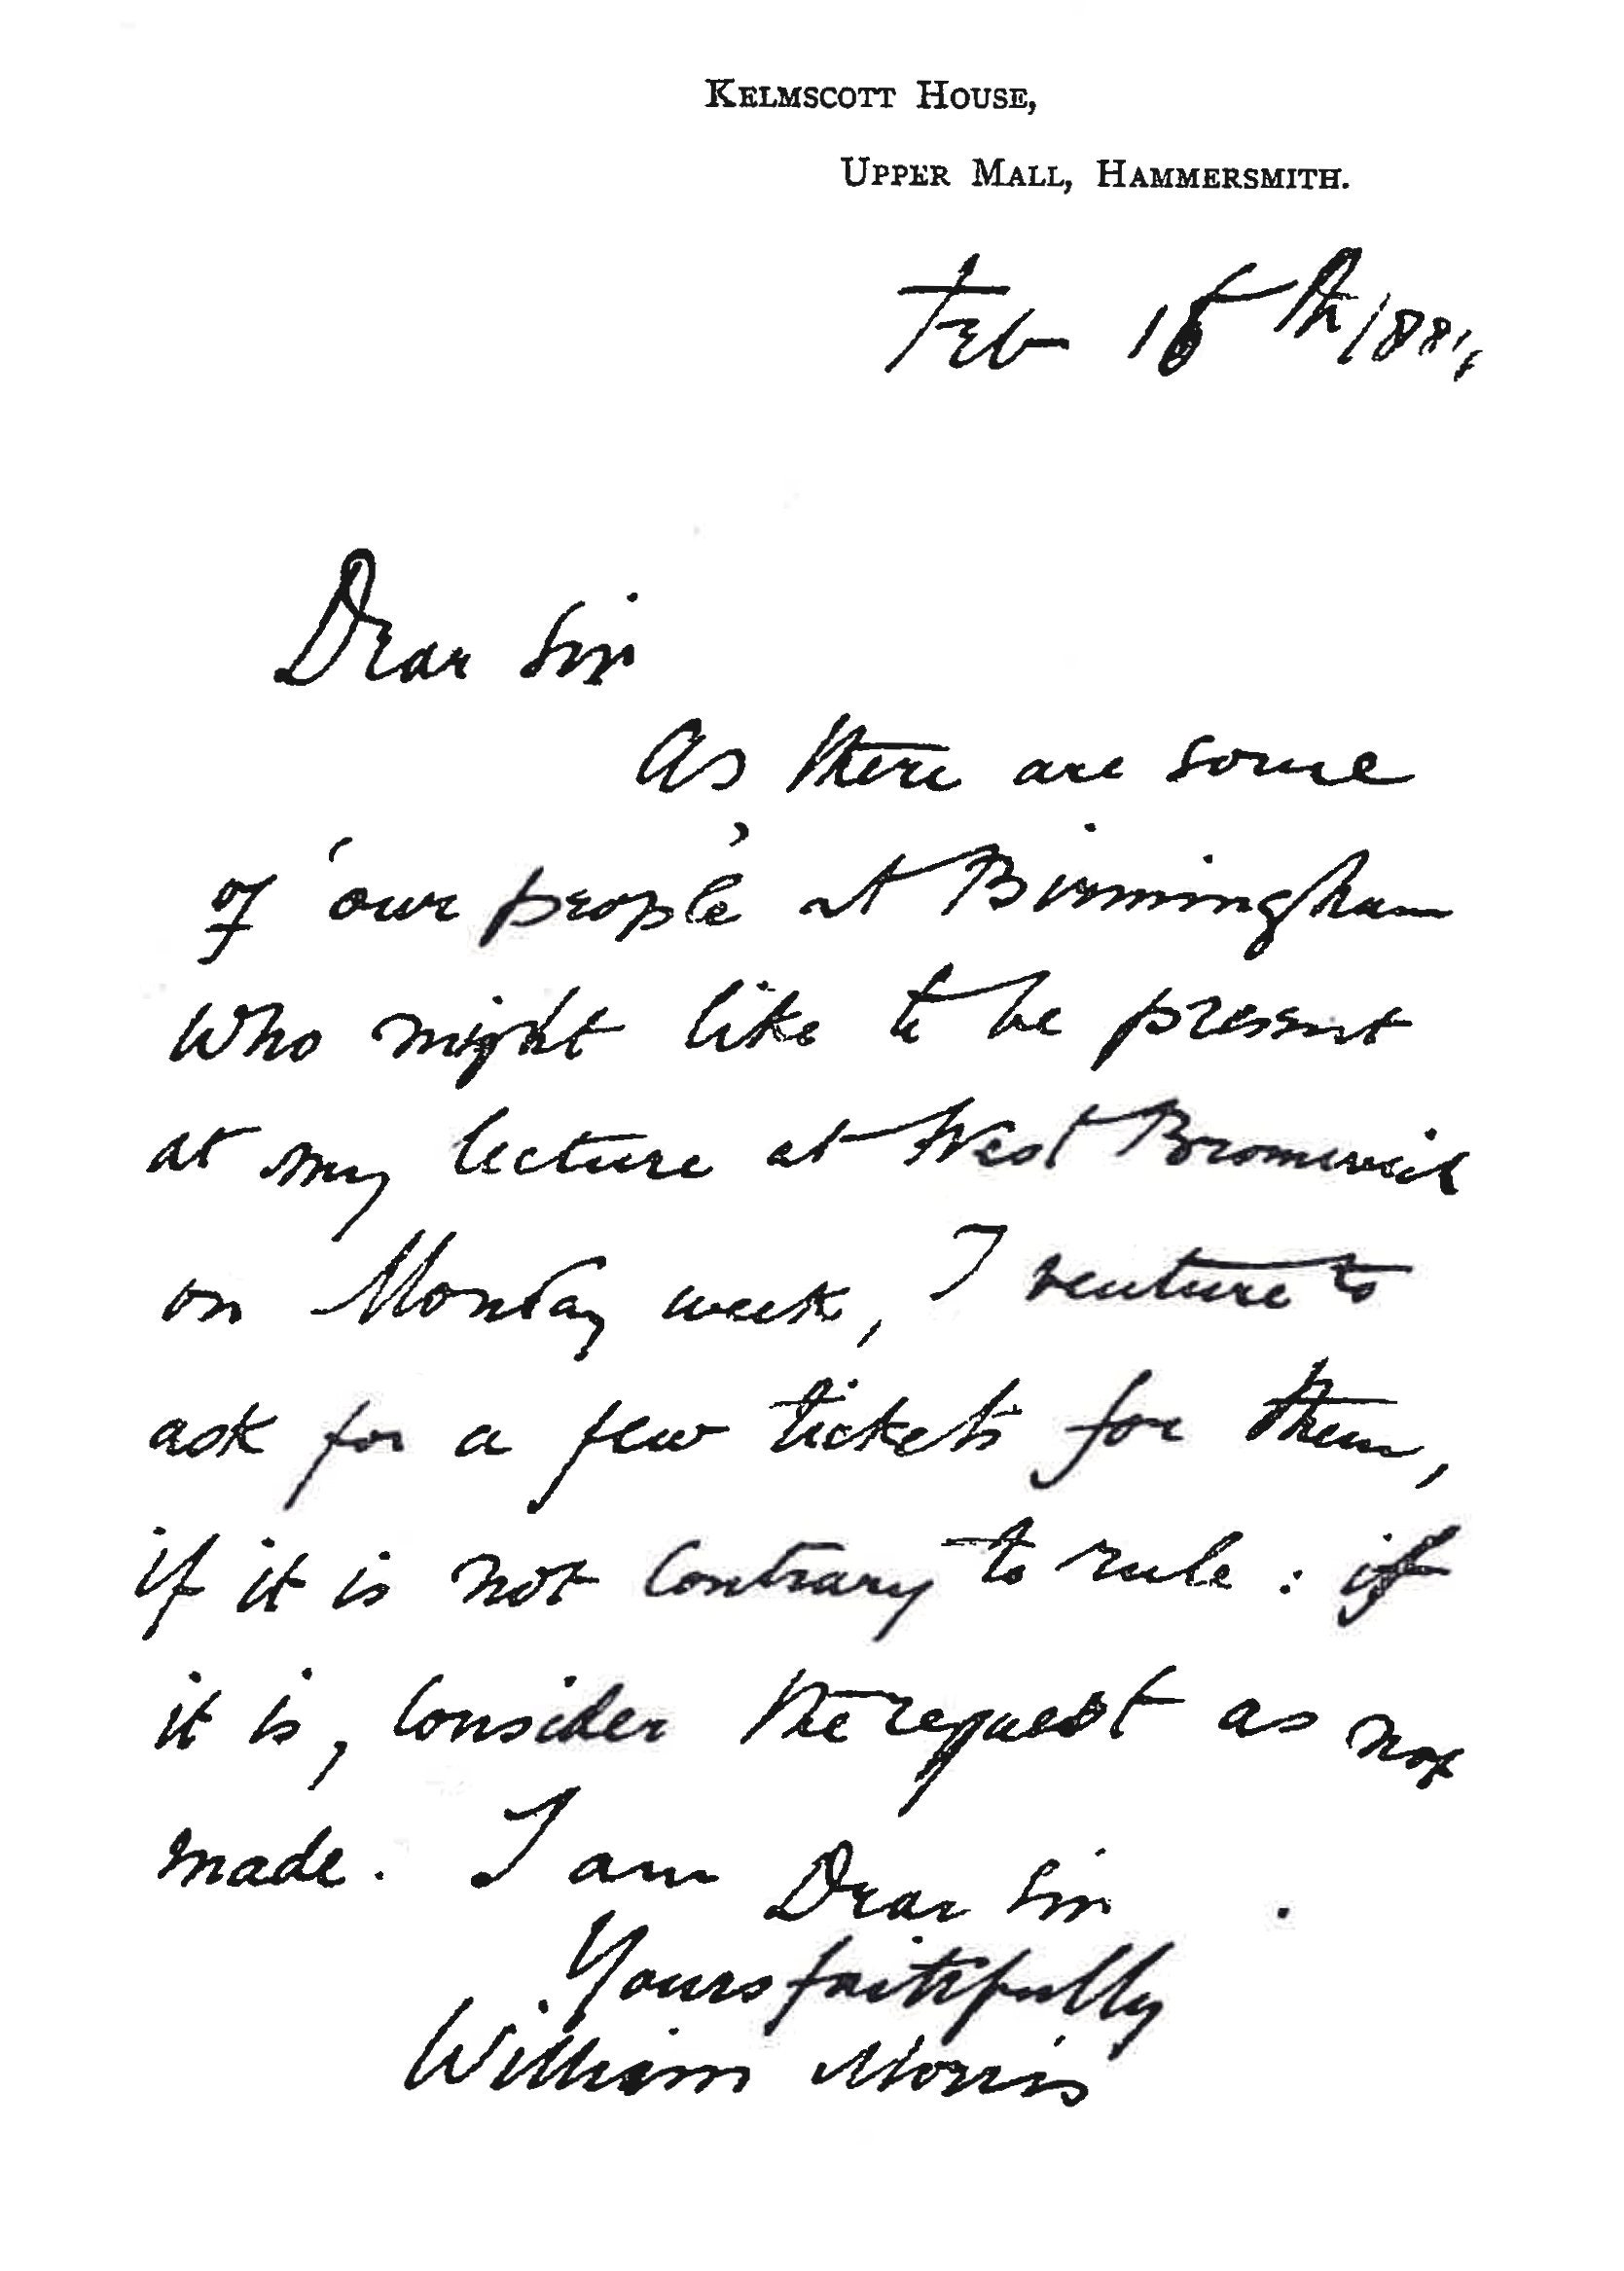 KELMSCOTT HOUSE,
UPPER MALL, HAMMERSMITH.
Feb
Dear Sir
As there are some
of 'our people' at Birmingham
who might like to be present
at my lecture at West Bromwich
on Monday week, I venture to
ask for a few tickets for them,
if it is not contrary to rule : if
it is, consider the request as not
made. I am Dear Sir
Yours faithfully
William Morris